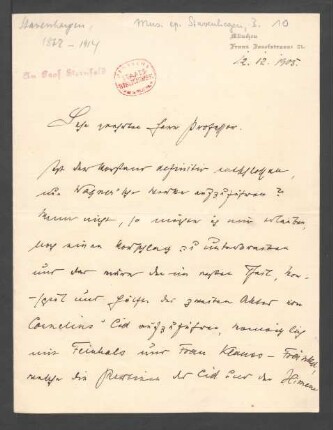 Stavenhagen,
1862 - 1914
Mus. ep. Stavenhagen, B. 10
München
Franz Josefstrasse
An Prof. Sternfeld
12. 12. 1905.
Sehr geehrter Herr Professor.
Ist der Vorstand definitiv entschlossen,
nur Wagner'sche Werke aufzuführen?
Wenn nicht, so möchte ich mir erlauben,
noch einen Vorschlag zu unterbreiten
und der wäre den im ersten Theil, Vor-
spiel und Hälfte des zweiten Aktes von
Cornelius' Cid aufzuführen, namentlich
mit Feinhals und Frau
welche die Partien des Cid und der Himene